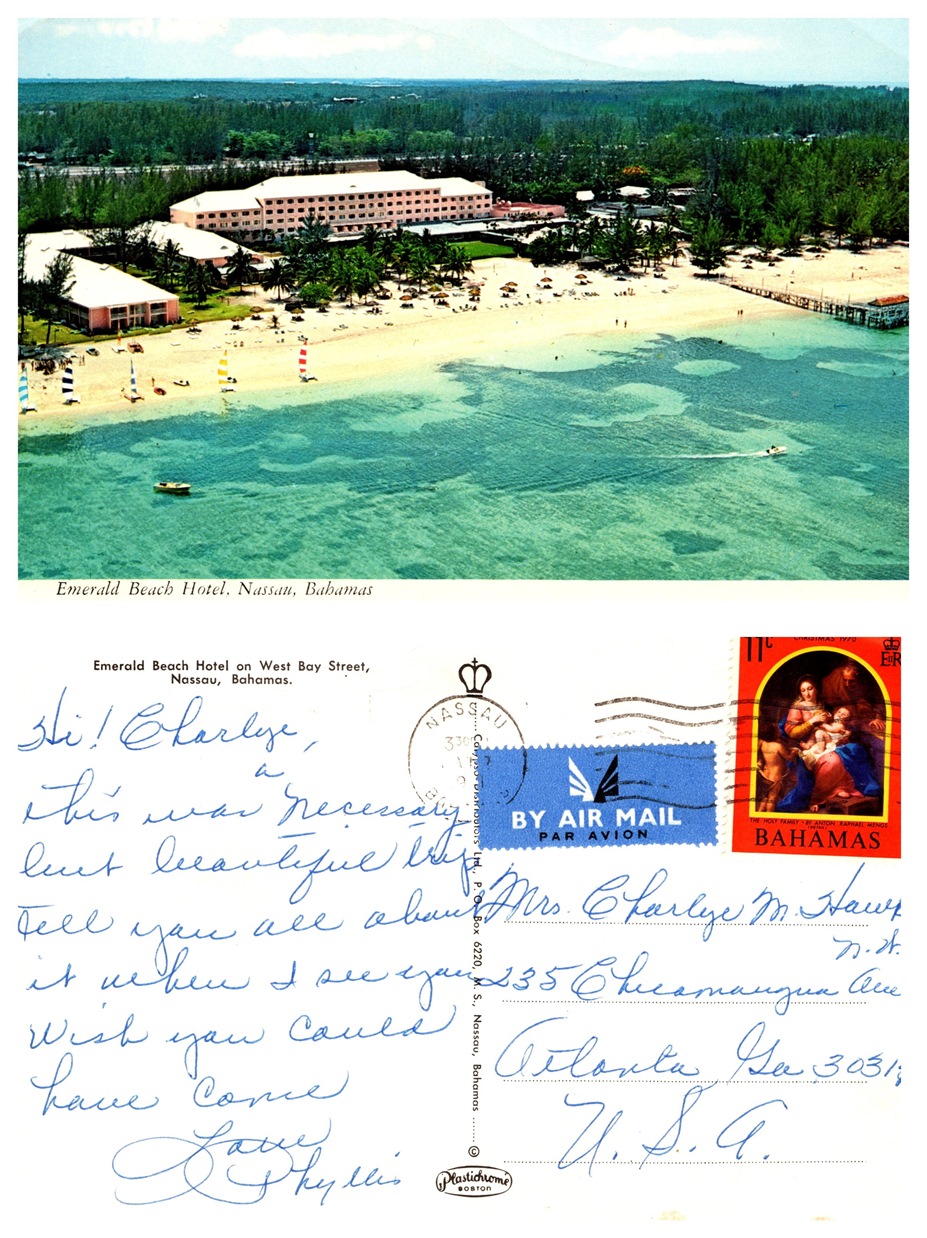 Emerald Beach Hotel, Nassau, Bahamas
Emerald Beach Hotel on West Bay Street,
Nassau, Bahamas.
Hi! Charlye,
a
this was necessary
but beautiful trip
Tell you all about
it when I see you
Wish you could
have come
Love
Phyllis
NASSAU
BY AIR MAIL
PAR AVION
11c
CHRISTMAS 1970
EIIR
THE HOLY FAMILY - BY ANTON RAPHAEL MENGS
BAHAMAS
Mrs. Charlye M. Hawk
N.W.
235 Chicamaugua Ave
Atlanta Ga 3031
U. S. A.
Ltd., P. O. Box 6220, M. S., Nassau, Bahamas
©
Plastichrome
BOSTON